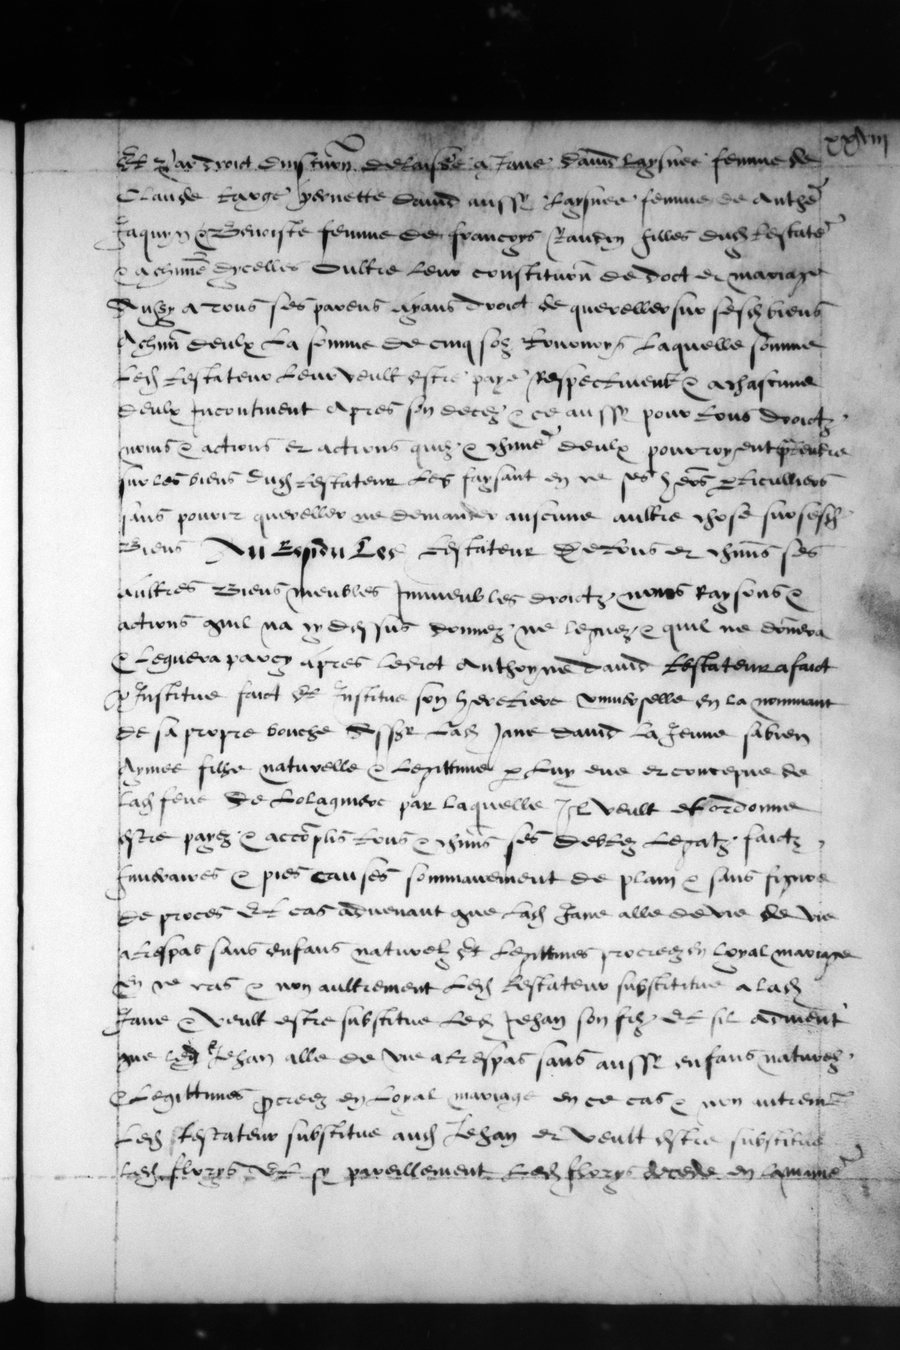 xxviii
Et par droict d'institu͠on delaisse a Jane David laysnee femme de
Claude pernette David aussy laysnee femme de Anthe
Jaquyn & Benoiste femme de Francoys Raudin filles dud testate
& a chũne dycelles oultre leur constitu͠on de doct et mariage
Aussy a tous ses parens ayans droict de quereller sur sesd biens
A chũn deulx la somme de cinq solz tournoys laquelle somme
led testateur leur veult estre paye respectivemt & a chascune
deulx incontinent apres son decez & ce aussy pour tous droictz
noms & actions et actions quilz & chũne deulx pourroyent prtendre
sur les biens dud testateur les faysant en ce ses hers pticulliers
sans pouvoir quereller ne demander aulcune aultre chose sur sesd
biens Au Residu led testateur de tous et chũns ses
aultres biens meubles immeubles droictz noms raysons &
actions quil na cy dessus donnez ne leguez & quil ne donnera
& leguera par cy apres ledict Anthoyne David testateur a faict
& institue faict et institue son heretiere universelle en la nommant
de sa propre bouche lad Jane David la jeune sa bien
aymee fille naturelle & legittime p luy eue et concepue de
lad feue de par laquelle il veult et ordonne
estre payez & accomplis tous & chũns ses debtez legatz faictz
funeraires & pies causes sommairement de plain & sans figure
de proces Et cas advenant que lad Jane alle de vie de vie
a trespas sans enfans naturelz et legittimes procreez en loyal mariage
en ce cas & non aultrement led testateur substitue a lad
Jane & veult estre substitue led Jehan son filz Et sil advient
que led Jehan alle de vie a trespas sans aussy enfans naturelz
& legittimes pcreez en loyal mariage en ce cas & non autremt
led testateur substitue aud Jehan et veult estre substitue
led florys Et sy pareillement led florys decede en la mame